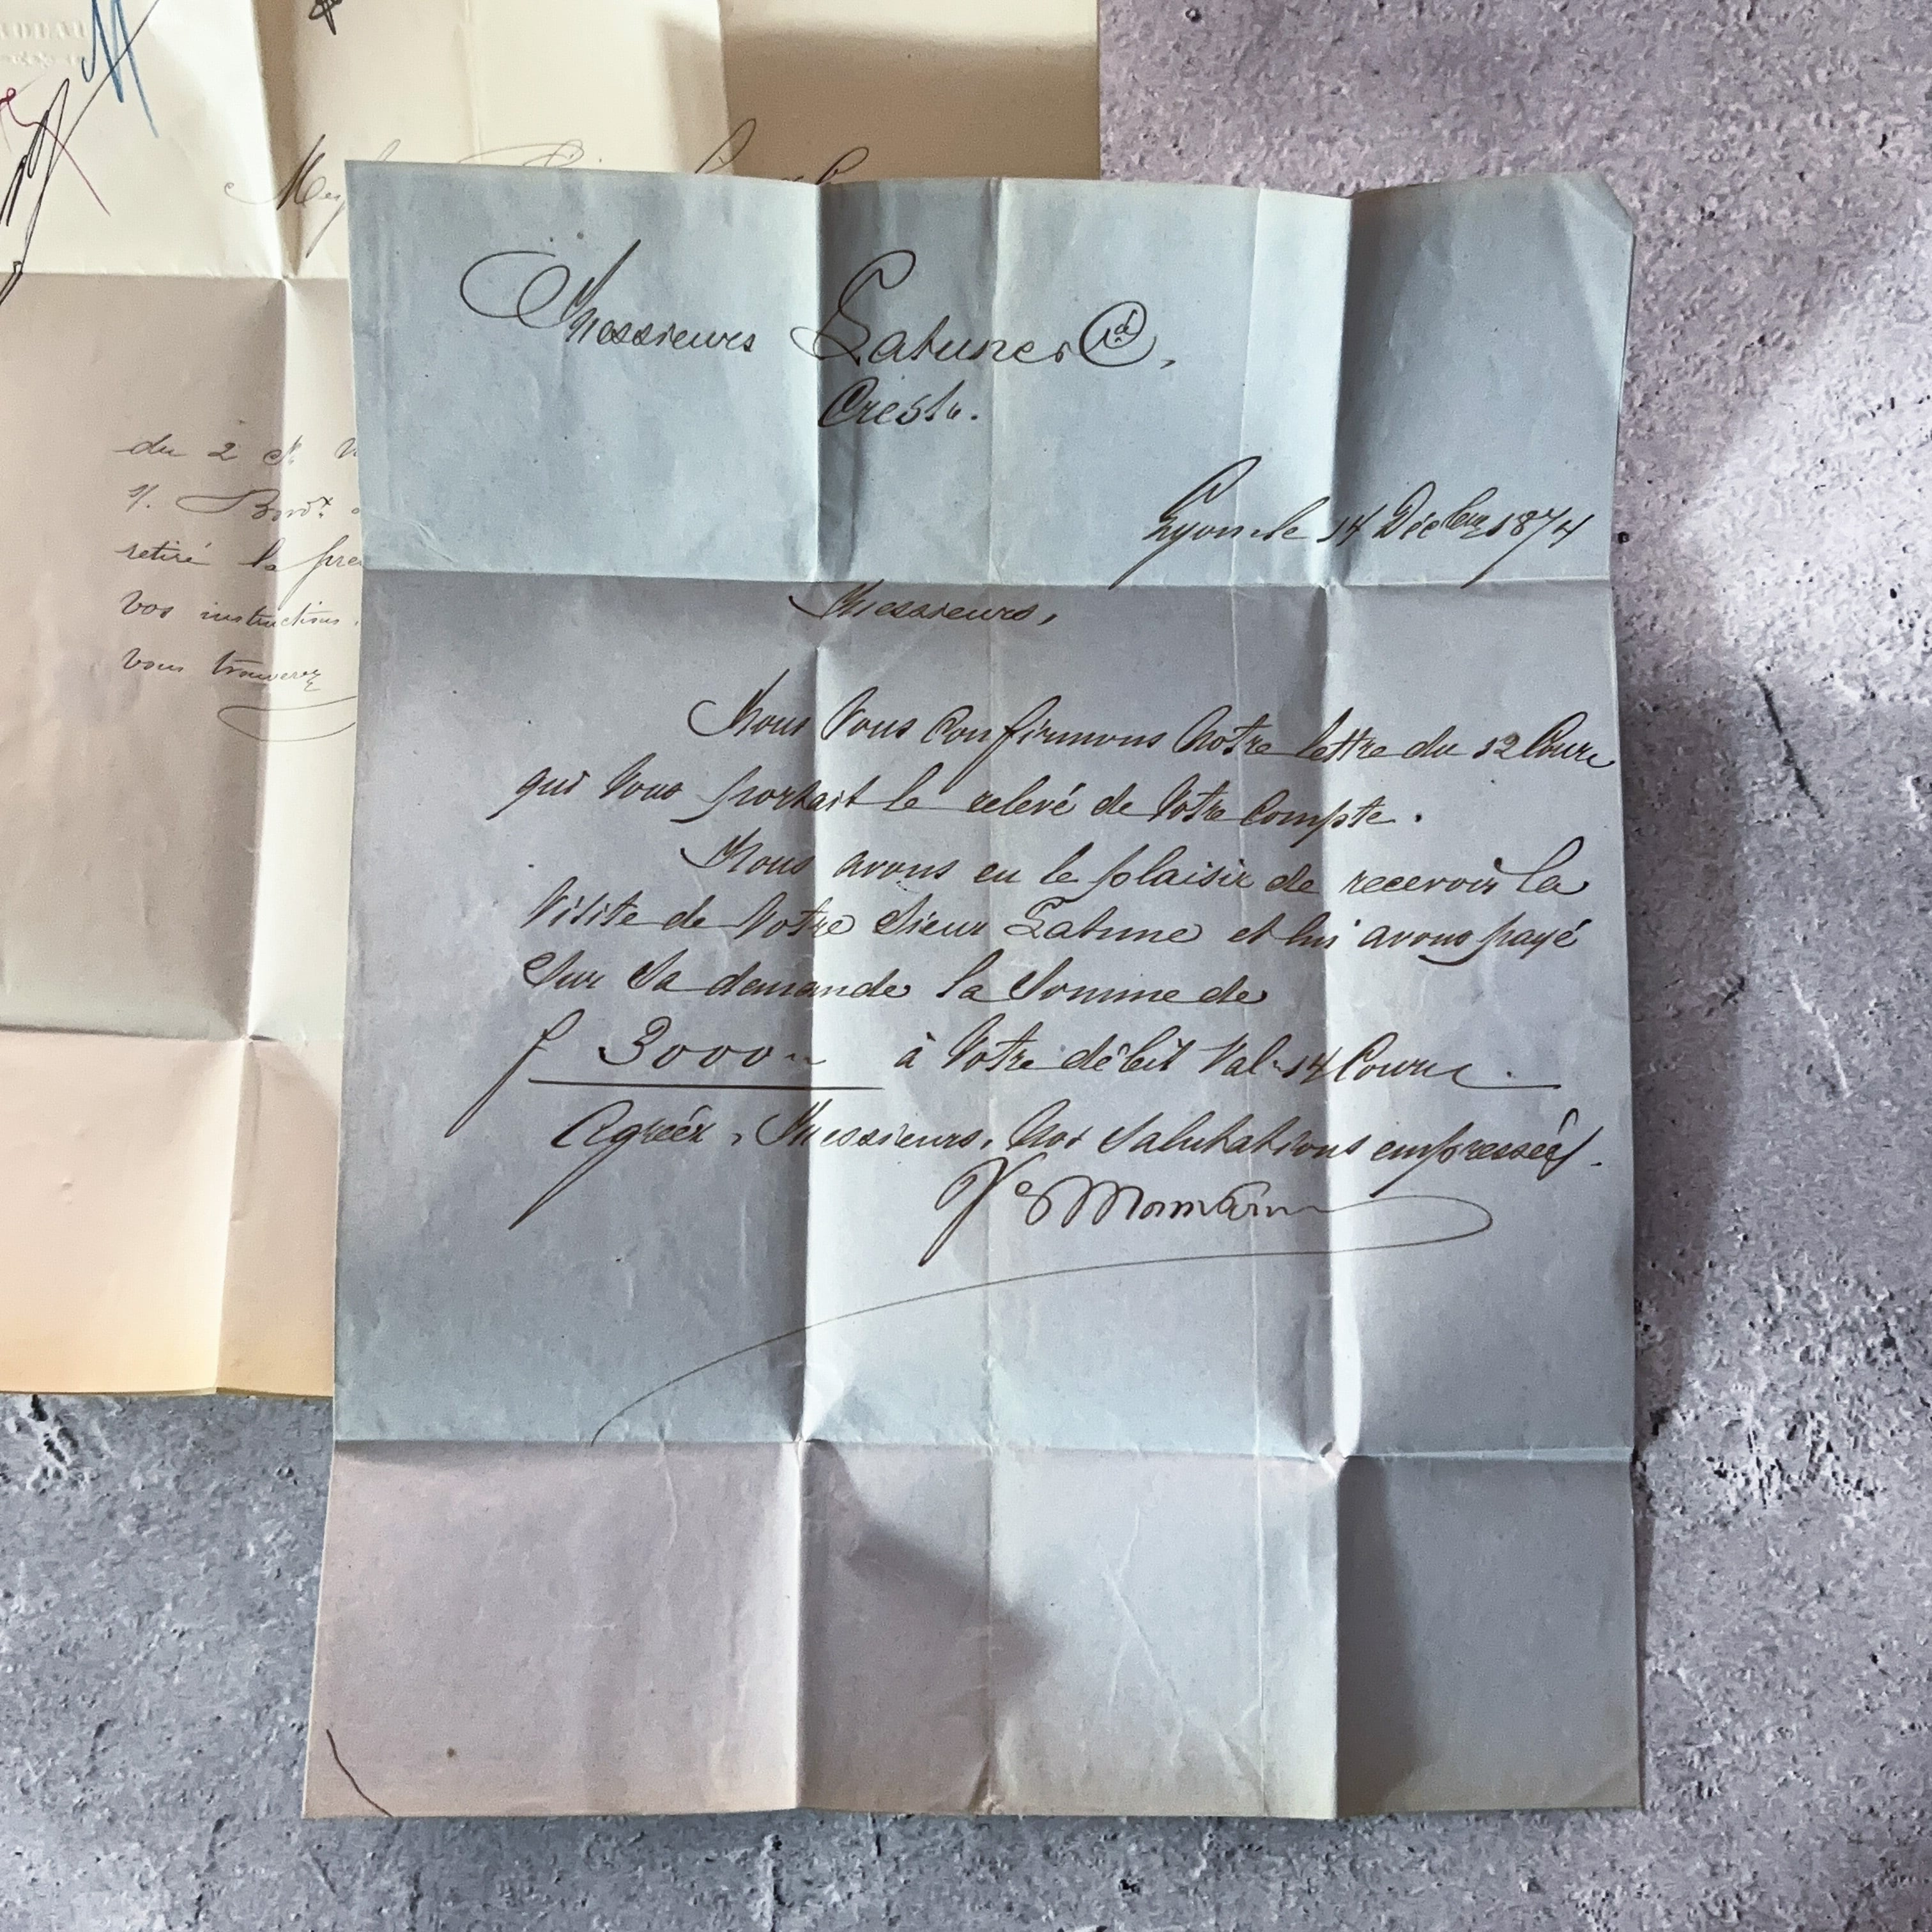 du 2 ct
retiré la
vos instructions.
vous trouverez
Messieurs Latune & Cie,
Crest.
Lyon le 14 Décbre 1874
Messieurs,
Nous Vous Confirmons Notre lettre du 12 Cour
qui Vous portait le relevé de Votre Compte.
Nous avons eu le plaisir de recevoir la
Visite de Votre Sieur Latune et lui avons payé
Sur Sa demande la Somme de
f 3000 à Votre débit Val 14 Cour
Agréez, Messieurs, Nos Salutations empressées.